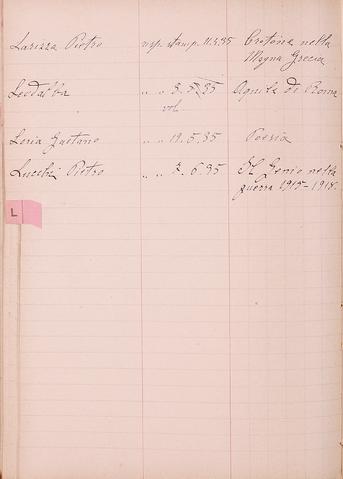 Larizza Pietro risp. stamp. 11.4.35 Crotona nella
Magna Grecia
" " 3.5.35 Aquila di Roma
vol.
Loria Gaetano " " 19.5.35 Poesia
Pietro " " 7.6.35 Il Genio nella
guerra 1915-1918.
L